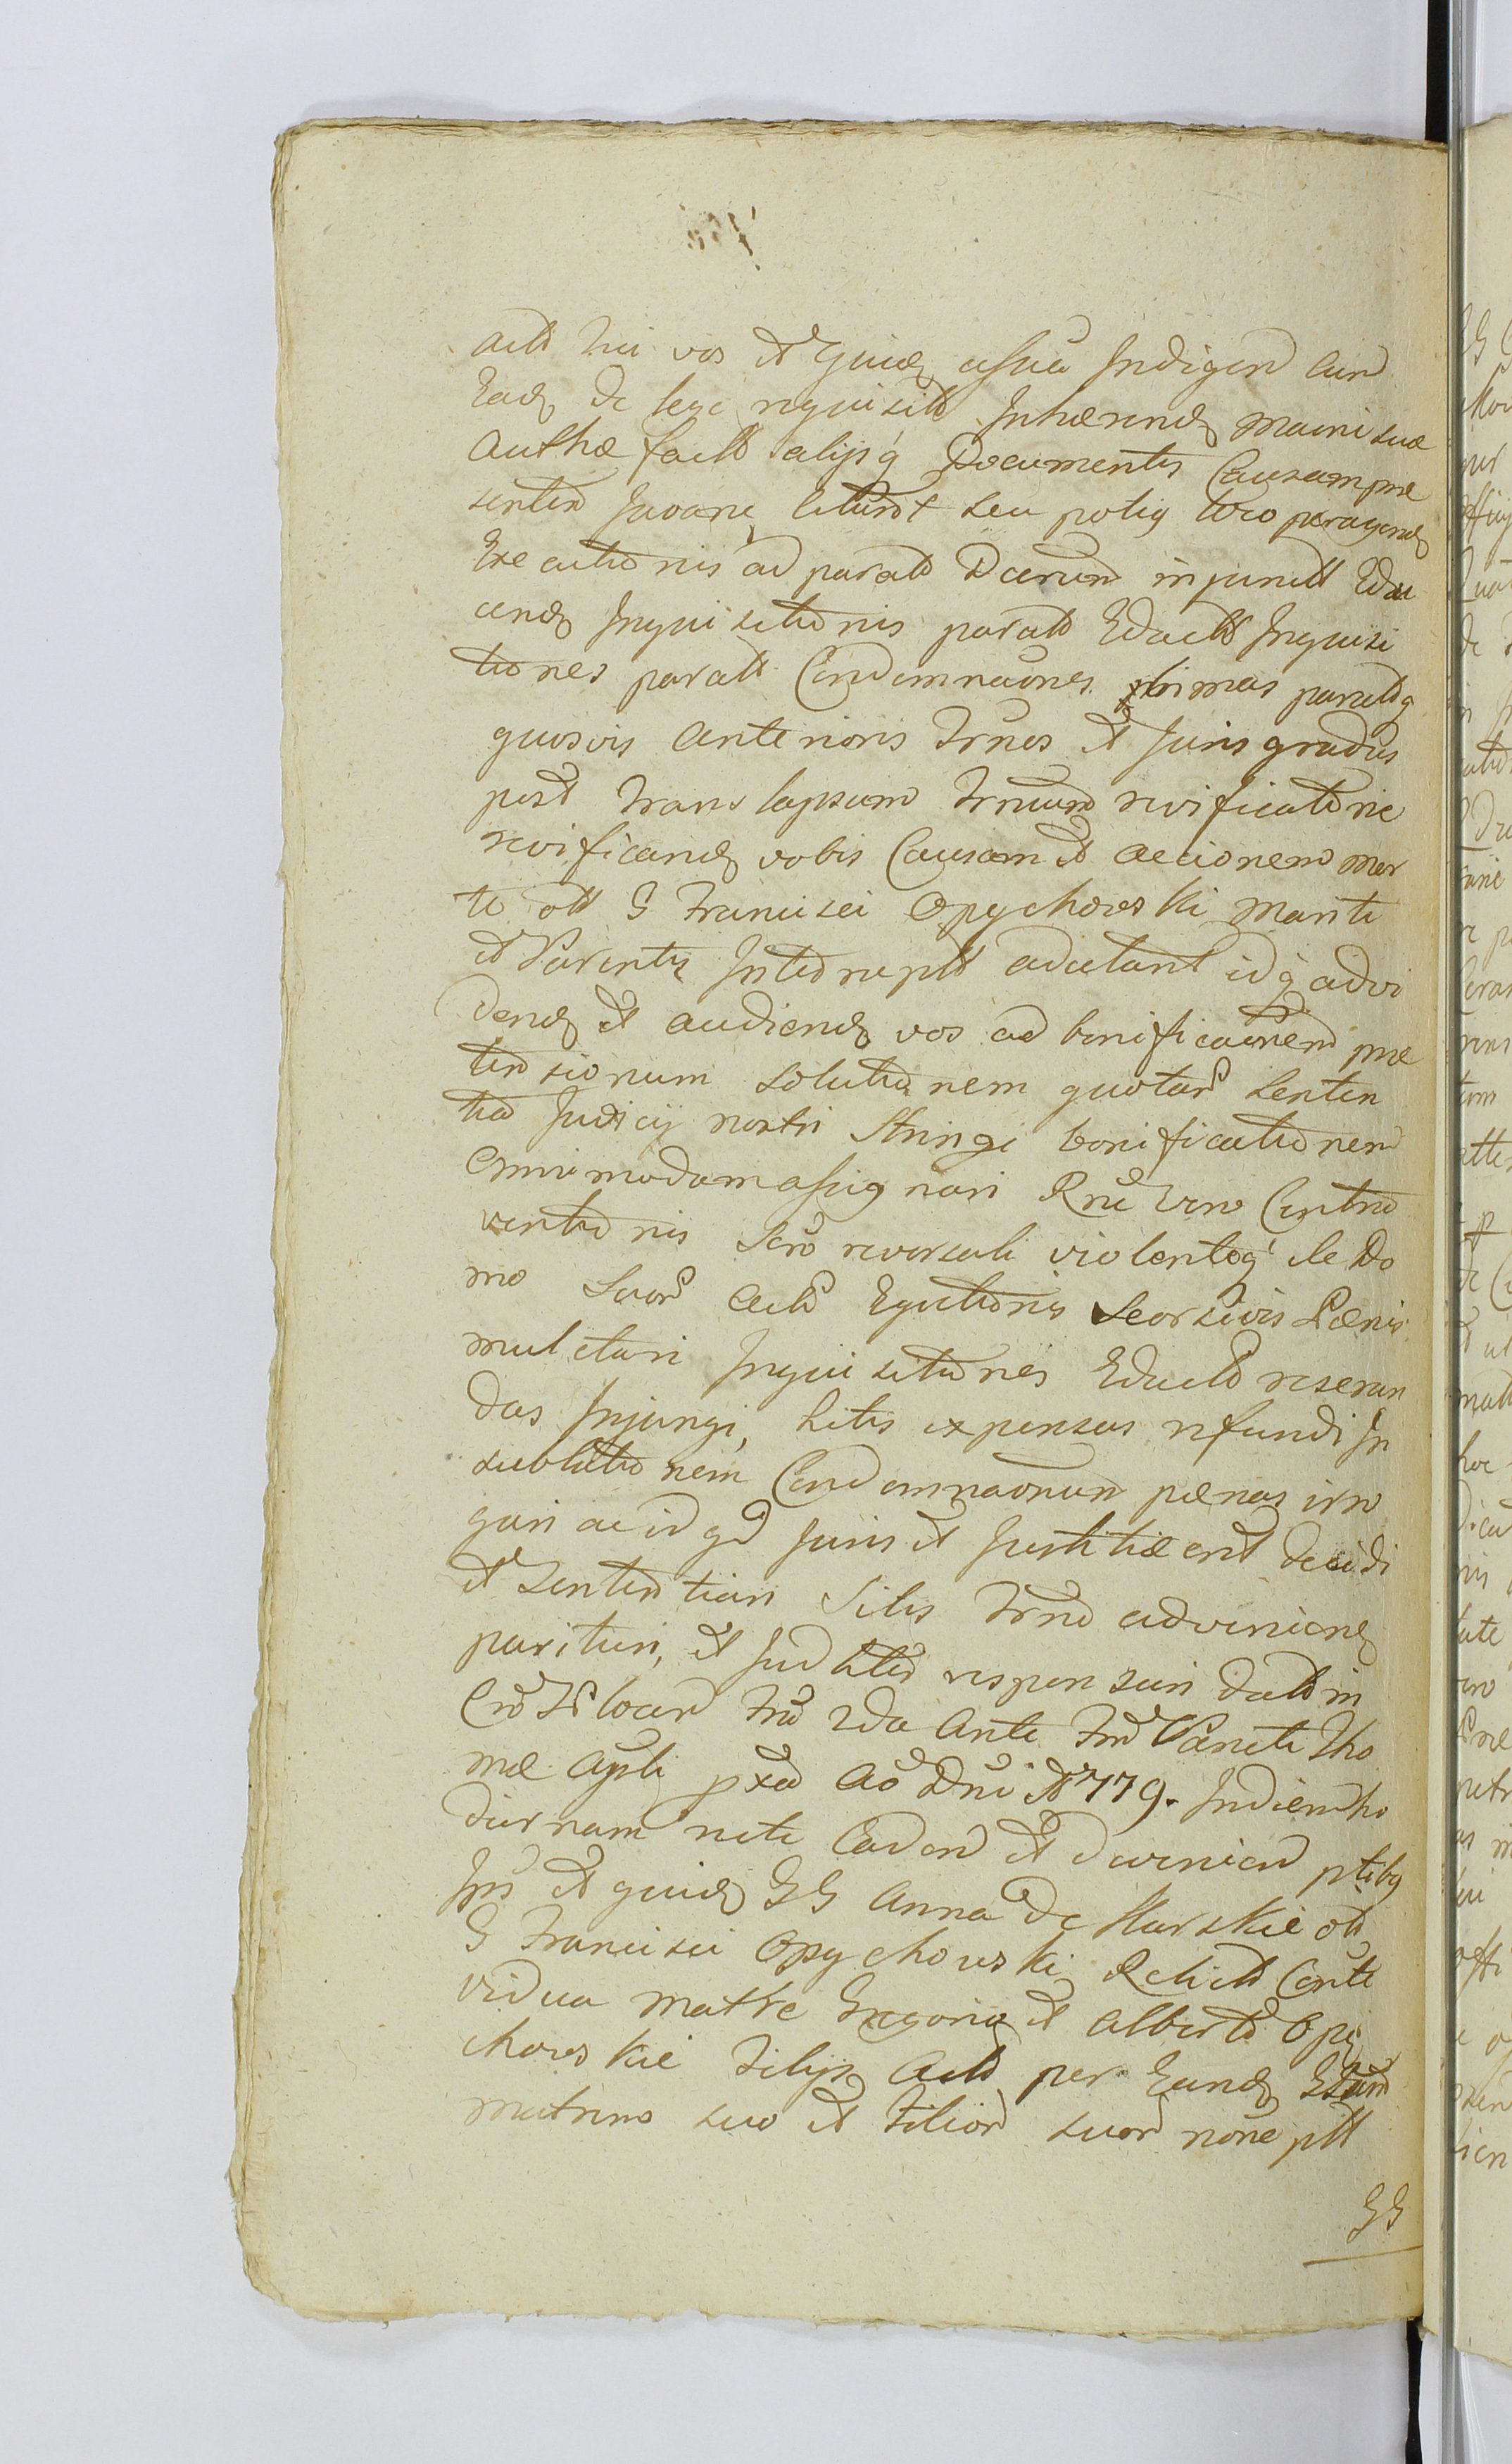 actt Tui vos et quidem assua Indigend cum
Ead de lege requisitt Inhærend mani suæ
Authæ factt alijsq Documentis Causam præ
sentem Juvare liturd seu potiq loco peragend
Executionis ad paratt Dærum injunctt Edu
cend Inquisitionis paratt Eductt Inquisi
tiones paratt Condemnaones primas paruitq
quosvis anterioris Trnos et Juris gradus
post translapsum Trnum revificatorie
revificand vobis Causam et accionem mor
te ott G Francisci Opychowski Mariti
et Parentis Interruptt adcitant idq advi
dend et audiend vos ad bonificaonem præ
tensionum solutionem quotar senten
tia Judicij nostri Stringi bonificationem
omnimodam assignari Rne vero Contra
ventionis Scro reversali violenteq de Do
mo suor actt Egutionis seorsivis Pænis
mulctari Inquisitiones Eductt reseran
das Injungi, litis expensas refundi In
sublationem Condemnaonum pænas irro
gari ac id qd Juris et Justitiæ erit decidi
et sententiari Silis Trno adveniend
parituri, et Judlter responsuri datt in
Cro loun fra 2da Ante Fm Sancti Tho
mæ Apsli pxa Ao Dni 1779. Indiem ho
diernam rite Caden et devenien ptibq
Ipis et quid GG Anna de Karskie ott
G Francisci Opychowski Relictt Conte
vidua matre Gregorio et Alberto Opy
chowskie filijs Actt per Eund Gsum
matrino suo et filior suor noie ptt
GG